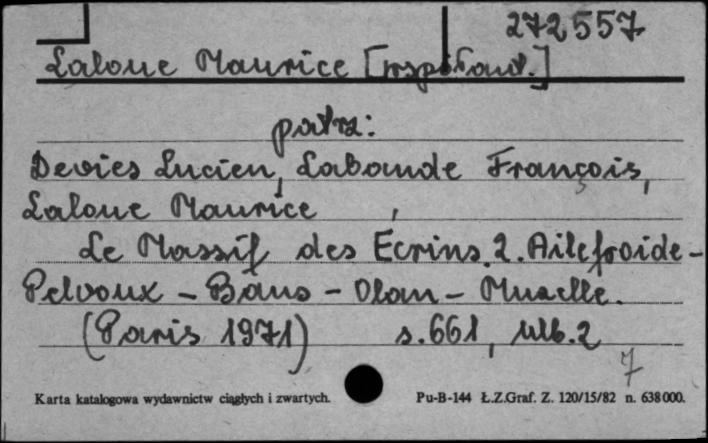 272557
Laloue Maurice [współaut.]
patrz:
Devies Lucien, Labande François,
Laloue Maurice
Le Massif des Ecrins. 2. Ailefroide-
Pelvoux - Bans - Olan - Muzelle.
(Paris 1971) s. 661, nlb. 2
7
Karta katalogowa wydawnictw ciągłych i zwartych. Pu-B-144 Ł.Z.Graf. Z. 120/15/82 n. 638000.